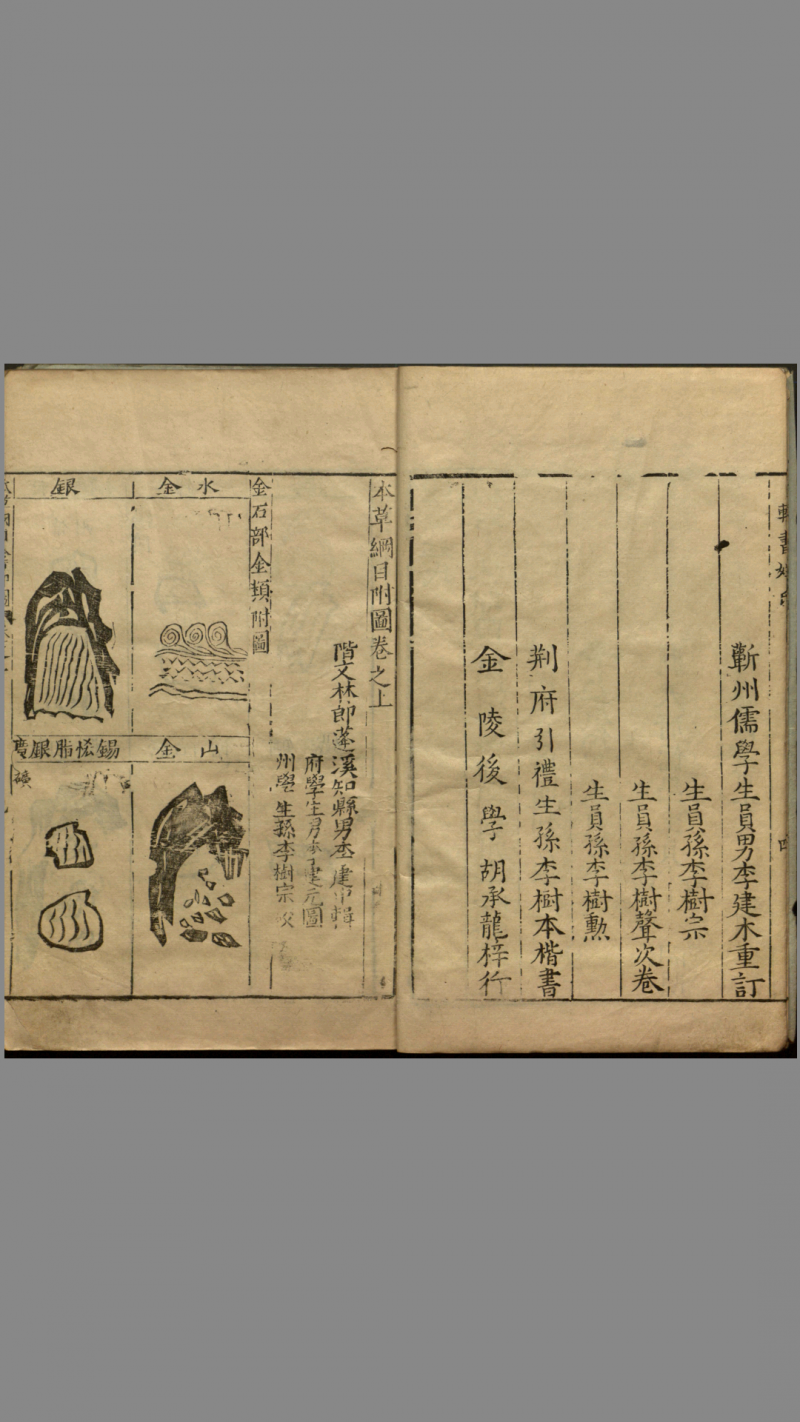 輯書姓氏
蘄州儒學生員男李建木重訂
生員孫李樹宗
生員孫李樹聲次卷
生員孫李樹勲
荆府引禮生孫李樹本楷書
金陵後學胡承龍梓行
本草綱目附圖卷之上
階文林郎蓬溪知縣男李建中輯
府學生男李建元圖
州學生孫李樹宗校
金石部金類附圖
水金
山金
銀
錫恡脂銀廣
礦